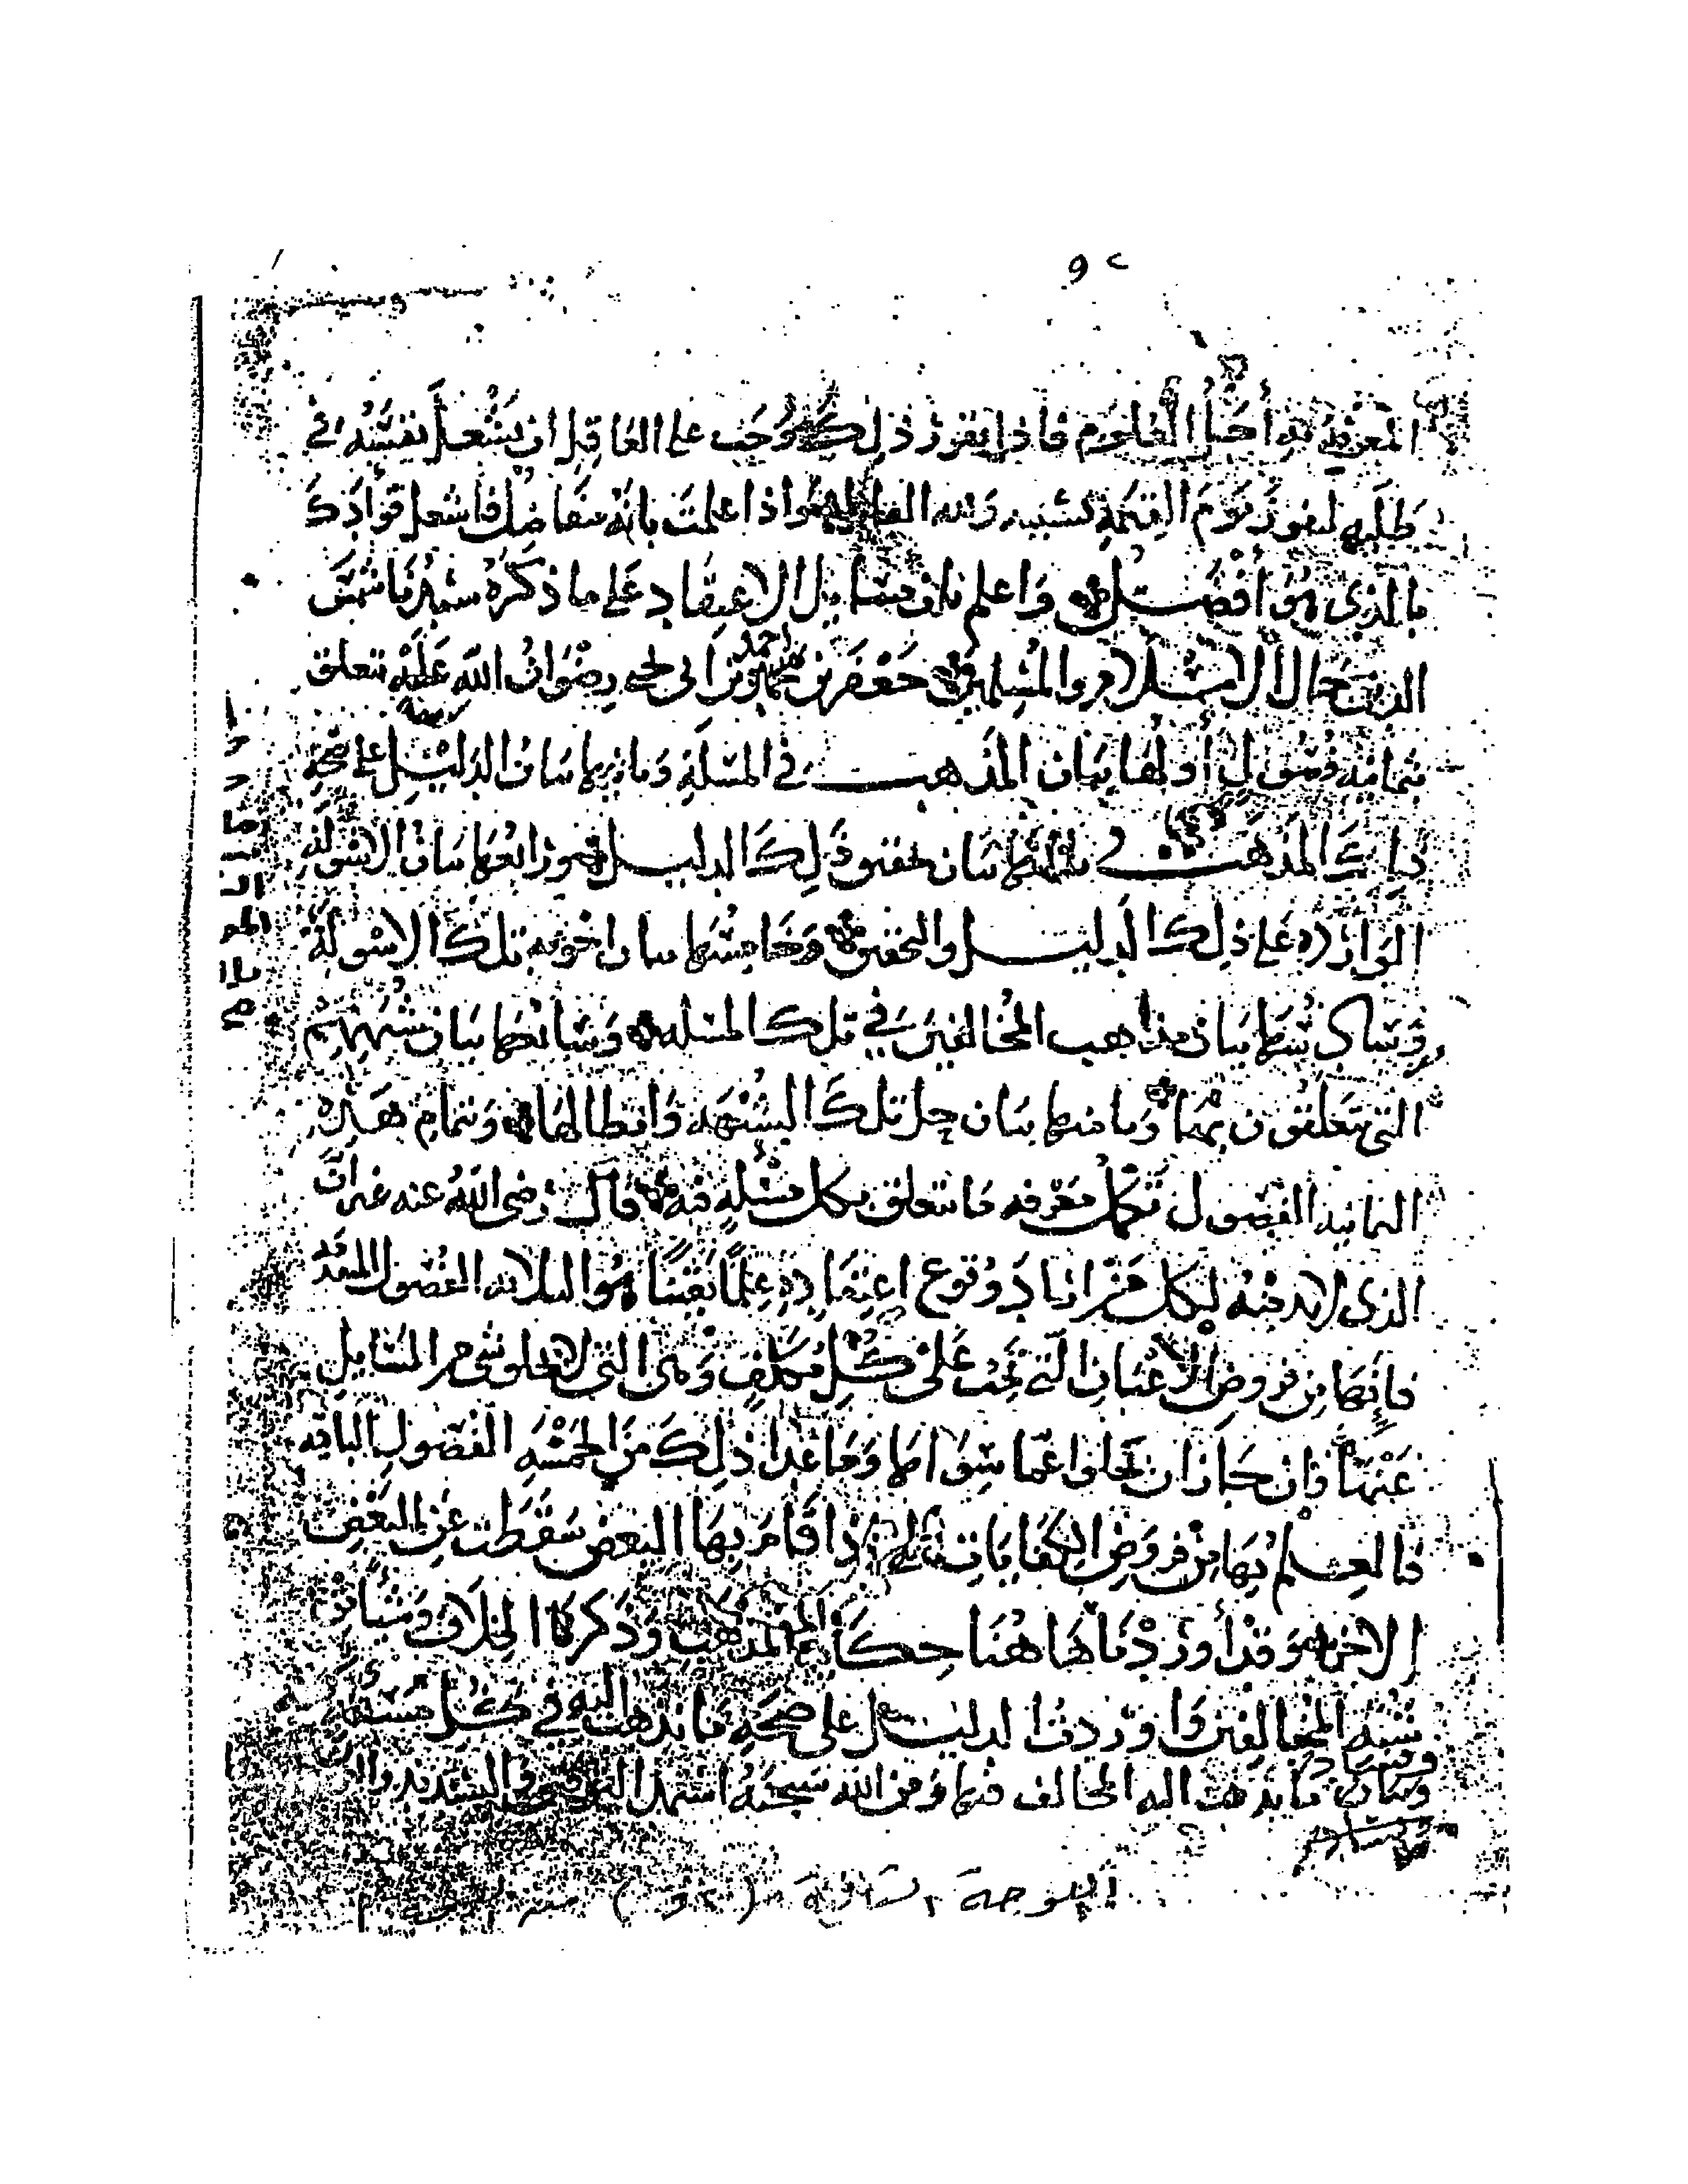 المعرفة به أجل العلوم فاذا تقرر ذلك وجب على العاقل ان يشغل نفسه في
طلبه ليفوز يوم القيمة بسببه ولله القائل واذا علمت بانه متفاضل فاشغل فؤادك
بالذي هو أفضل واعلم بان مسايل الاعتقاد على ما ذكره شيخنا شمس
الدين جمال الاسلام والمسلمين جعفر بن أحمد بن ابي يحيى رضوان الله عليه تتعلق
بثمانية فصول أولها بيان المذهب في المسئلة وثانيها بيان الدليل على صحة
ذلك المذهب وثالثها بيان تحقيق ذلك الدليل ورابعها بيان الاسولة
الواردة على ذلك الدليل والتحقيق وخامسها بيان اجوبة تلك الاسولة
وسادسها بيان مذاهب المخالفين في تلك المسئله وسابعها بيان شبههم
التي يتعلقون بها وثامنها بيان حل تلك الشبهه وابطالها وبتمام هذه
الثمانية الفصول تكمل معرفه ما يتعلق بكل مسئلة فيه قال رضي الله عنه غير ان
الذي لابد منه لكل من اراد وقوع اعتقاده علما يقينا هو الثلاثه الفصول المتقدمه
فإنها من فروض الأعيان التي تجب على كل مكلف وهي التي لا يخلو شي من المسايل
عنها وإن جاز ان تخلوا عما سواها وما عدا ذلك من الخمسة الفصول الباقيه
فالعلم بها من فروض الكفايات التي إذا قام بها البعض سقطت عن البعض
الاخر وقد أوردنا هاهنا حكاية المذهب وذكرنا الخلاف وبيان
شبه المخالفين واوردنا الدليل على صحة ما نذهب اليه في كل مسئلة
وفساد ما يذهب اليه المخالف فيها ومن الله سبحنه استمد التوفيق والتسديد
اللوحة الثانية (٢و)